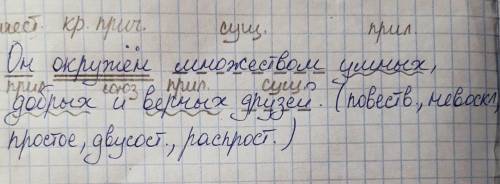 мест. кр. прич. сущ. прил.
Он окружён множеством умных,
прил. союз прил. сущ.
добрых и верных друзей. (повеств., невоскл,
простое, двусост., распрост.)